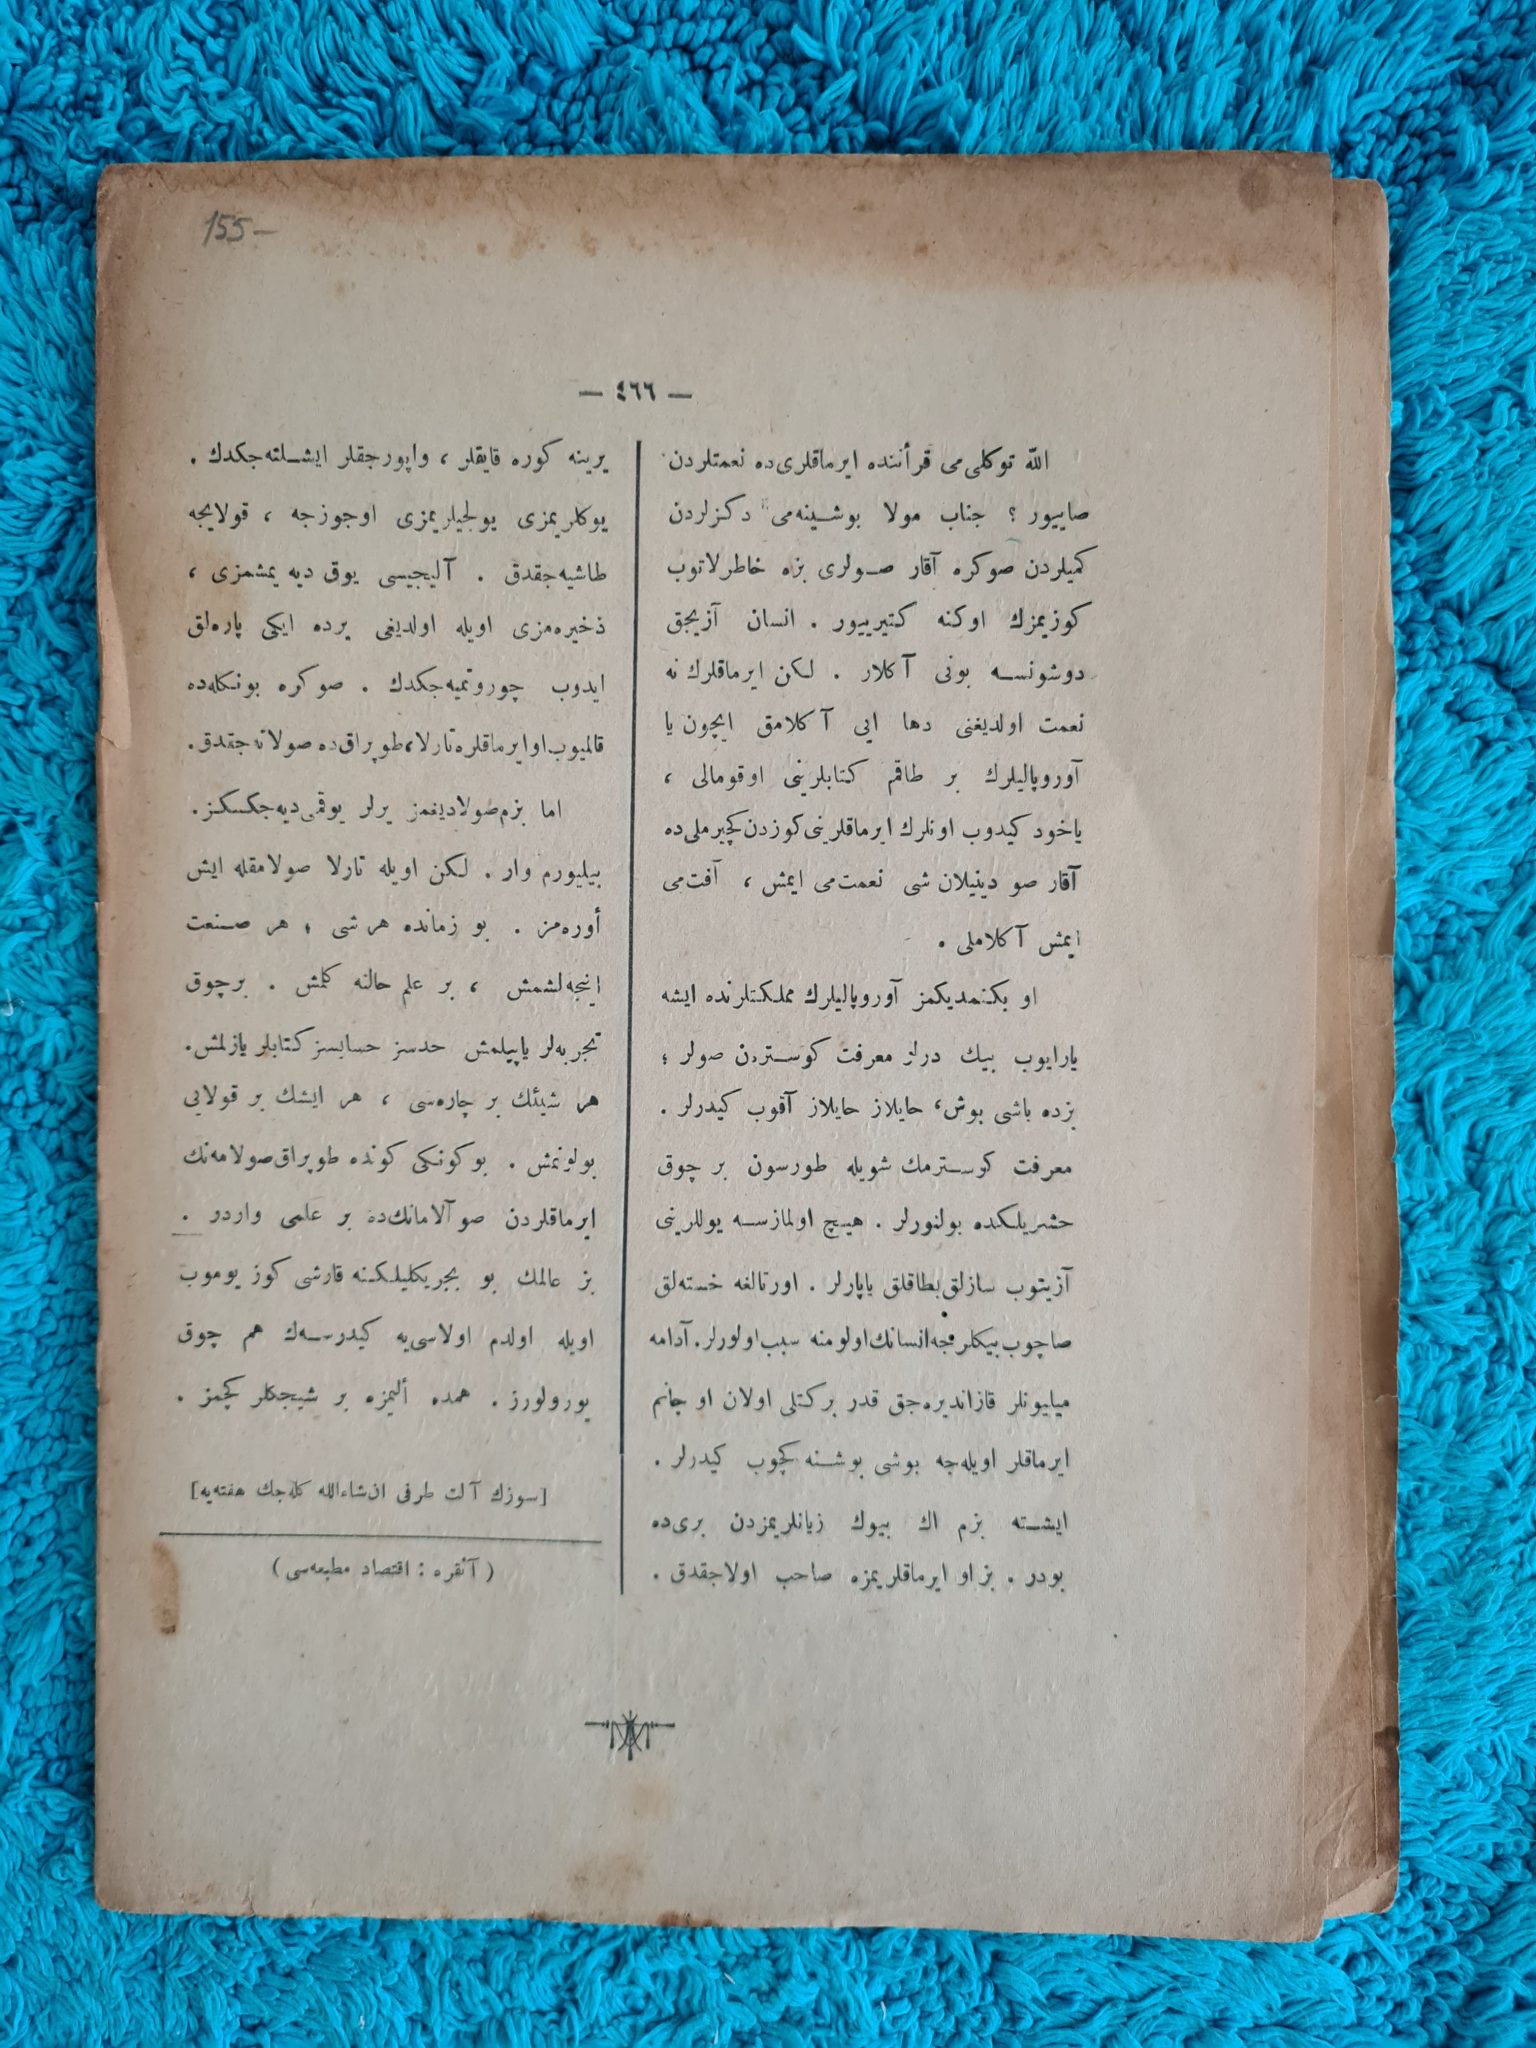 155-
— ٤٦٦ —
الله توكلی‌می قرأننده ایرماقلری‌ده نعمتلردن
صاییور ؟ جناب مولا بوشینه‌می دكزلردن
كمیلردن صوكره آقار صولری بزه خاطرلاتوب
كوزیمزك اوكنه كتیرییور . انسان آزیجق
دوشونسه بونی آكلار . لكن ایرماقلرك نه
نعمت اولدیغنی دها ایی آكلامق ایچون یا
آوروپالیلرك بر طاقم كتابلرینی اوقومالی ،
یاخود كیدوب اونلرك ایرماقلرینی كوزدن كچیرملی‌ده
آقار صو دینیلان شی نعمت‌می ایمش ، آفت‌می
ایمش آكلاملی .
او بكنمدیكمز آوروپالیلرك مملكتلرنده ایشه
یارایوب بیك درلو معرفت كوسترن صولر ؛
بزده باشی بوش، حایلاز حایلاز آقوب كیدرلر .
معرفت كوسترمك شویله طورسون بر چوق
حشریلكده بولنورلر . هیچ اولمازسه یوللرینی
آزیتوب سازلق بطاقلق یاپارلر . اورتالغه خسته‌لق
صاچوب بیكلرجه انسانك اولومنه سبب اولورلر. آدامه
میلیونلر قازاندیره‌جق قدر بركتلی اولان او جانم
ایرماقلر اویله‌جه بوشی بوشنه كچوب كیدرلر .
ایشته بزم اك بیوك زیانلریمزدن بری‌ده
بودر . بز او ایرماقلریمزه صاحب اولاجقدق .
یرینه كوره قایقلر ، واپورجقلر ایشلته‌جكدك .
یوكلریمزی یولجیلریمزی اوجوزجه ، قولایجه
طاشیه‌جقدق . آلیجیسی یوق دیه یمشمزی ،
ذخیره‌مزی اویله اولدیغی یرده ایكی پاره‌لق
ایدوب چوروتمیه‌جكدك . صوكره بونكله‌ده
قالمیوب او ایرماقلره تارلا، طوپراق‌ده صولاته‌جقدق.
اما بزم صولادیغمز یرلر یوقمی دیه‌جكسكز.
بیلیورم وار . لكن اویله تارلا صولامقله ایش
أوره‌مز . بو زمانده هر شی ؛ هر صنعت
اینجه‌لشمش ، بر علم حالنه كلمش . بر چوق
تجربه‌لر یاپیلمش حدسز حسابسز كتابلر یازلمش.
هر شیئك بر چاره‌سی ، هر ایشك بر قولایی
بولونمش . بو كونكی كونده طوپراق صولامه‌نك
ایرماقلردن صو آلامانك‌ده بر علمی واردر .
بز عالمك بو بجریكلیلكنه قارشی كوز یوموب
اویله اولدم اولاسی‌یه كیدرسه‌ك هم چوق
یورولورز . همده ألیمزه بر شیجكلر كچمز .
[سوزك آلت طرفی ان شاءالله كله‌جك هفته‌یه]
( آنقره : اقتصاد مطبعه‌سی )